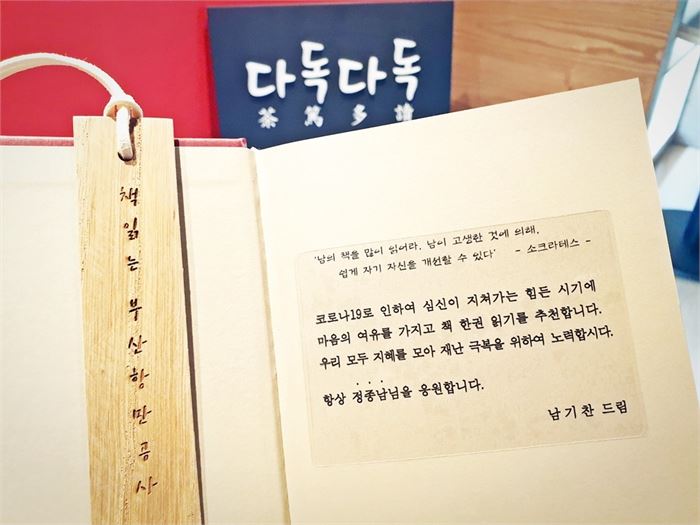 다독다독
茶篤多讀
책 읽는 부산항만공사
'남의 책을 많이 읽어라. 남이 고생한 것에 의해,
쉽게 자기 자신을 개선할 수 있다' - 소크라테스 -
코로나19로 인하여 심신이 지쳐가는 힘든 시기에
마음의 여유를 가지고 책 한권 읽기를 추천합니다.
우리 모두 지혜를 모아 재난 극복을 위하여 노력합시다.
항상 정종남님을 응원합니다.
남기찬 드림